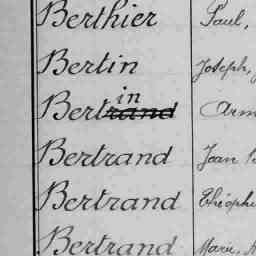 Berthier Paul,
Bertin Joseph,
Bertin
Bertrand Jean
Bertrand Théophi
Bertrand Marie,